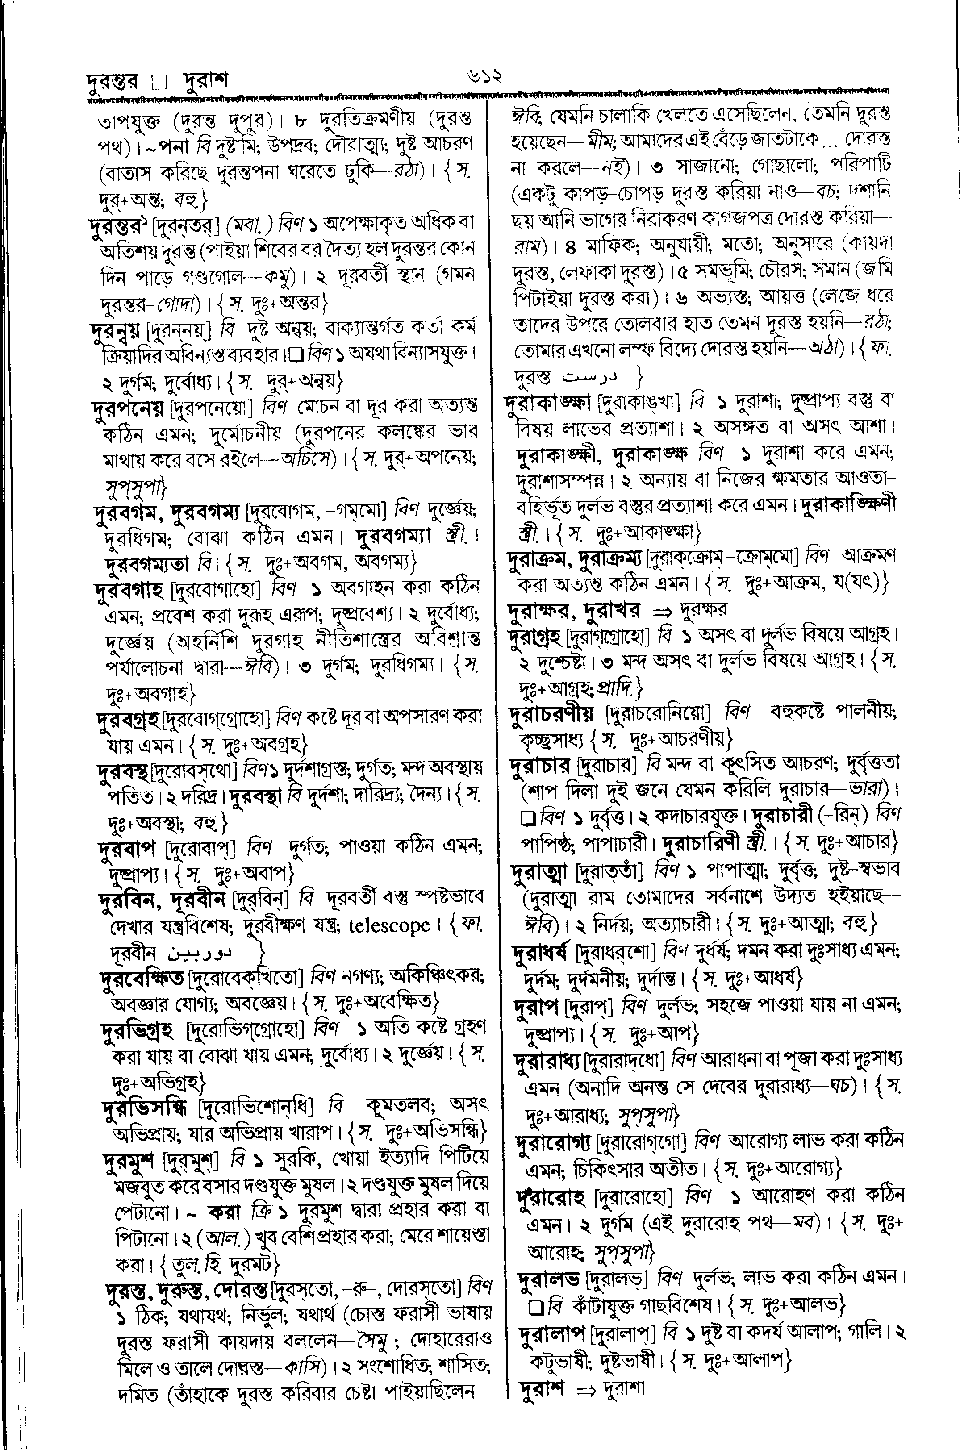 দুরন্তর □ দুরাশ
৬১২
তাপযুক্ত (দুরন্ত দুপুর)। ৮ দুরতিক্রমণীয় (দুরন্ত
পথ)। ~পনা বি দুষ্টামি; উপদ্রব; দৌরাত্ম্য; দুষ্ট আচরণ
(বাতাস করিছে দুরন্তপনা ঘরেতে ঢুকি—রঠা)। {স.
দুর্+অন্ত; বহু}
দুরন্তর² [দুরন্‌তর্] (মবা.) বিণ ১ অপেক্ষাকৃত অধিক বা
অতিশয় দুরন্ত (পাইয়া শিবের বর দৈত্য হল দুরন্তর কোন
দিন পাড়ে গণ্ডগোল—কমু)। ২ দূরবর্তী স্থান (গমন
দুরন্তর-গোদা)। {স. দুঃ+অন্তর}
দুরন্বয় [দুরন্‌নয়্] বি দুষ্ট অন্বয়; বাক্যান্তর্গত কর্তা কর্ম
ক্রিয়াদির অবিন্যস্ত ব্যবহার। □ বিণ ১ অযথা বিন্যাসযুক্ত।
২ দুর্গম; দুর্বোধ্য। {স. দুর্+অন্বয়}
দুরপনেয় [দুরপনেয়ো] বিণ মোচন বা দূর করা অত্যন্ত
কঠিন এমন; দুর্মোচনীয় (দুরপনের কলঙ্কের ভাব
মাথায় করে বসে রইলে—অচিসে)। {স. দুর্+অপনেয়;
সুপ্‌সুপা}
দুরবগম, দুরবগম্য [দুরবোগম, -গম্‌মো] বিণ দুর্জ্ঞেয়;
দুরধিগম; বোঝা কঠিন এমন। দুরবগম্যা স্ত্রী.।
দুরবগম্যতা বি। {স. দুঃ+অবগম, অবগম্য}
দুরবগাহ [দুরবোগাহো] বিণ ১ অবগাহন করা কঠিন
এমন; প্রবেশ করা দুরূহ এরূপ; দুষ্প্রবেশ্য। ২ দুর্বোধ্য;
দুর্জ্ঞেয় (অহর্নিশি দুরগাহ নীতিশাস্ত্রের অবিশ্রান্ত
পর্যালোচনা দ্বারা—ঈবি)। ৩ দুর্গম; দুরধিগম্য। {স.
দুঃ+অবগাহ}
দুরবগ্রহ [দুরবোগ্‌গ্রোহো] বিণ কষ্টে দূর বা অপসারণ করা
যায় এমন। {স. দুঃ+অবগ্রহ}
দুরবস্থ [দুরোবস্‌থো] বিণ ১ দুর্দশাগ্রস্ত; দুর্গত; মন্দ অবস্থায়
পতিত। ২ দরিদ্র। দুরবস্থা বি দুর্দশা; দারিদ্র্য; দৈন্য। {স.
দুঃ+অবস্থা; বহু.}
দুরবাপ [দুরোবাপ্] বিণ দুর্গত; পাওয়া কঠিন এমন;
দুষ্প্রাপ্য। {স. দুঃ+অবাপ}
দুরবিন, দূরবীন [দুর্‌বিন্] বি দূরবর্তী বস্তু স্পষ্টভাবে
দেখার যন্ত্রবিশেষ; দূরবীক্ষণ যন্ত্র; telescope। {ফা.
দূরবীন دوربين }
দুরবেক্ষিত [দুরোবেক্‌খিতো] বিণ নগণ্য; অকিঞ্চিৎকর;
অবজ্ঞার যোগ্য; অবজ্ঞেয়। {স. দুঃ+অবেক্ষিত}
দুরভিগ্রহ [দুরোভিগ্‌গ্রোহো] বিণ ১ অতি কষ্টে গ্রহণ
করা যায় বা বোঝা যায় এমন; দুর্বোধ্য। ২ দুর্জ্ঞেয়। {স.
দুঃ+অভিগ্রহ}
দুরভিসন্ধি [দুরোভিশোন্‌ধি] বি কুমতলব; অসৎ
অভিপ্রায়; যার অভিপ্রায় খারাপ। {স. দুঃ+অভিসন্ধি}
দুরমুশ [দুর্‌মুশ্] বি ১ সুরকি, খোয়া ইত্যাদি পিটিয়ে
মজবুত করে বসার দণ্ডযুক্ত মুষল। ২ দণ্ডযুক্ত মুষল দিয়ে
পেটানো। ~ করা ক্রি ১ দুরমুশ দ্বারা প্রহার করা বা
পিটানো। ২ (আল.) খুব বেশি প্রহার করা; মেরে শায়েস্তা
করা। {তুল. হি. দুরমট}
দুরস্ত, দুরুস্ত, দোরস্ত [দুরস্‌তো, -রু-, দোরস্‌তো] বিণ
১ ঠিক; যথাযথ; নির্ভুল; যথার্থ (চোস্ত ফরাসী ভাষায়
দুরস্ত ফরাসী কায়দায় বললেন—সৈমু; দোহারেরাও
মিলে ও তালে দোরস্ত—কাসি)। ২ সংশোধিত; শাসিত;
দমিত (তাঁহাকে দুরস্ত করিবার চেষ্টা পাইয়াছিলেন
ঈবি, যেমনি চালাকি খেলতে এসেছিলেন, তেমনি দুরস্ত
হয়েছেন—মীম; আমাদের এই বেঁড়ে জাতটাকে ... দোরস্ত
না করলে—নই)। ৩ সাজানো; গোছালো; পরিপাটি
(একটু কাপড়-চোপড় দুরস্ত করিয়া নাও—বচ; দশানি
ছয় আনি ভাগের নিরাকরণ কাগজপত্র দোরস্ত করিয়া—
রাম)। ৪ মাফিক; অনুযায়ী; মতো; অনুসারে (কায়দা
দুরস্ত, লেফাফা দুরস্ত)। ৫ সমভূমি; চৌরস; সমান (জমি
পিটাইয়া দুরস্ত করা)। ৬ অভ্যস্ত; আয়ত্ত (লেজে ধরে
তাদের উপরে তোলবার হাত তেমন দুরস্ত হয়নি—রঠা;
তোমার এখনো লম্ফ বিদ্যে দোরস্ত হয়নি—অঠা)। {ফা.
দুরস্ত درست }
দুরাকাঙ্ক্ষা [দুরাকাঙ্‌খা] বি ১ দুরাশা; দুষ্প্রাপ্য বস্তু বা
বিষয় লাভের প্রত্যাশা। ২ অসঙ্গত বা অসৎ আশা।
দুরাকাঙ্ক্ষী, দুরাকাঙ্ক্ষ বিণ ১ দুরাশা করে এমন;
দুরাশাসম্পন্ন। ২ অন্যায় বা নিজের ক্ষমতার আওতা-
বহির্ভূত দুর্লভ বস্তুর প্রত্যাশা করে এমন। দুরাকাঙ্ক্ষিণী
স্ত্রী.। {স. দুঃ+আকাঙ্ক্ষা}
দুরাক্রম, দুরাক্রম্য [দুরাক্‌ক্রোম্-ক্রোম্‌মো] বিণ আক্রমণ
করা অত্যন্ত কঠিন এমন। {স. দুঃ+আক্রম, য(যৎ)}
দুরাক্ষর, দুরাখর ⇒ দুরক্ষর
দুরাগ্রহ [দুরাগ্‌গ্রোহো] বি ১ অসৎ বা দুর্লভ বিষয়ে আগ্রহ।
২ দুশ্চেষ্টা। ৩ মন্দ অসৎ বা দুর্লভ বিষয়ে আগ্রহ। {স.
দুঃ+আগ্রহ; প্রাদি.}
দুরাচরণীয় [দুরাচরোনিয়ো] বিণ বহুকষ্টে পালনীয়;
কৃচ্ছ্রসাধ্য {স. দুঃ+আচরণীয়}
দুরাচার [দুরাচার্] বি মন্দ বা কুৎসিত আচরণ; দুর্বৃত্ততা
(শাপ দিলা দুই জনে যেমন করিলি দুরাচার—ভারা)।
□ বিণ ১ দুর্বৃত্ত। ২ কদাচারযুক্ত। দুরাচারী (-রিন্) বিণ
পাপিষ্ঠ; পাপাচারী। দুরাচারিণী স্ত্রী.। {স. দুঃ+আচার}
দুরাত্মা [দুরাত্‌তাঁ] বিণ ১ পাপাত্মা; দুর্বৃত্ত; দুষ্ট-স্বভাব
(দুরাত্মা রাম তোমাদের সর্বনাশে উদ্যত হইয়াছে—
ঈবি)। ২ নির্দয়; অত্যাচারী। {স. দুঃ+আত্মা; বহু}
দুরাধর্ষ [দুরাধর্‌শো] বিণ দুর্ধর্ষ; দমন করা দুঃসাধ্য এমন;
দুর্দম; দুর্দমনীয়; দুর্দান্ত। {স. দুঃ+আধর্ষ}
দুরাপ [দুরাপ্] বিণ দুর্লভ; সহজে পাওয়া যায় না এমন;
দুষ্প্রাপ্য। {স. দুঃ+আপ}
দুরারাধ্য [দুরারাদধো] বিণ আরাধনা বা পূজা করা দুঃসাধ্য
এমন (অনাদি অনন্ত সে দেবের দুরারাধ্য—ঘচ)। {স.
দুঃ+আরাধ্য; সুপ্‌সুপা}
দুরারোগ্য [দুরারোগ্‌গো] বিণ আরোগ্য লাভ করা কঠিন
এমন; চিকিৎসার অতীত। {স. দুঃ+আরোগ্য}
দুরারোহ [দুরারোহো] বিণ ১ আরোহণ করা কঠিন
এমন। ২ দুর্গম (এই দুরারোহ পথ—মব)। {স. দুঃ+
আরোহ; সুপ্‌সুপা}
দুরালভ [দুরালভ্] বিণ দুর্লভ; লাভ করা কঠিন এমন।
□ বি কাঁটাযুক্ত গাছবিশেষ। {স. দুঃ+আলভ}
দুরালাপ [দুরালাপ্] বি ১ দুষ্ট বা কদর্য আলাপ; গালি। ২
কটুভাষী; দুষ্টভাষী। {স. দুঃ+আলাপ}
দুরাশ ⇒ দুরাশা